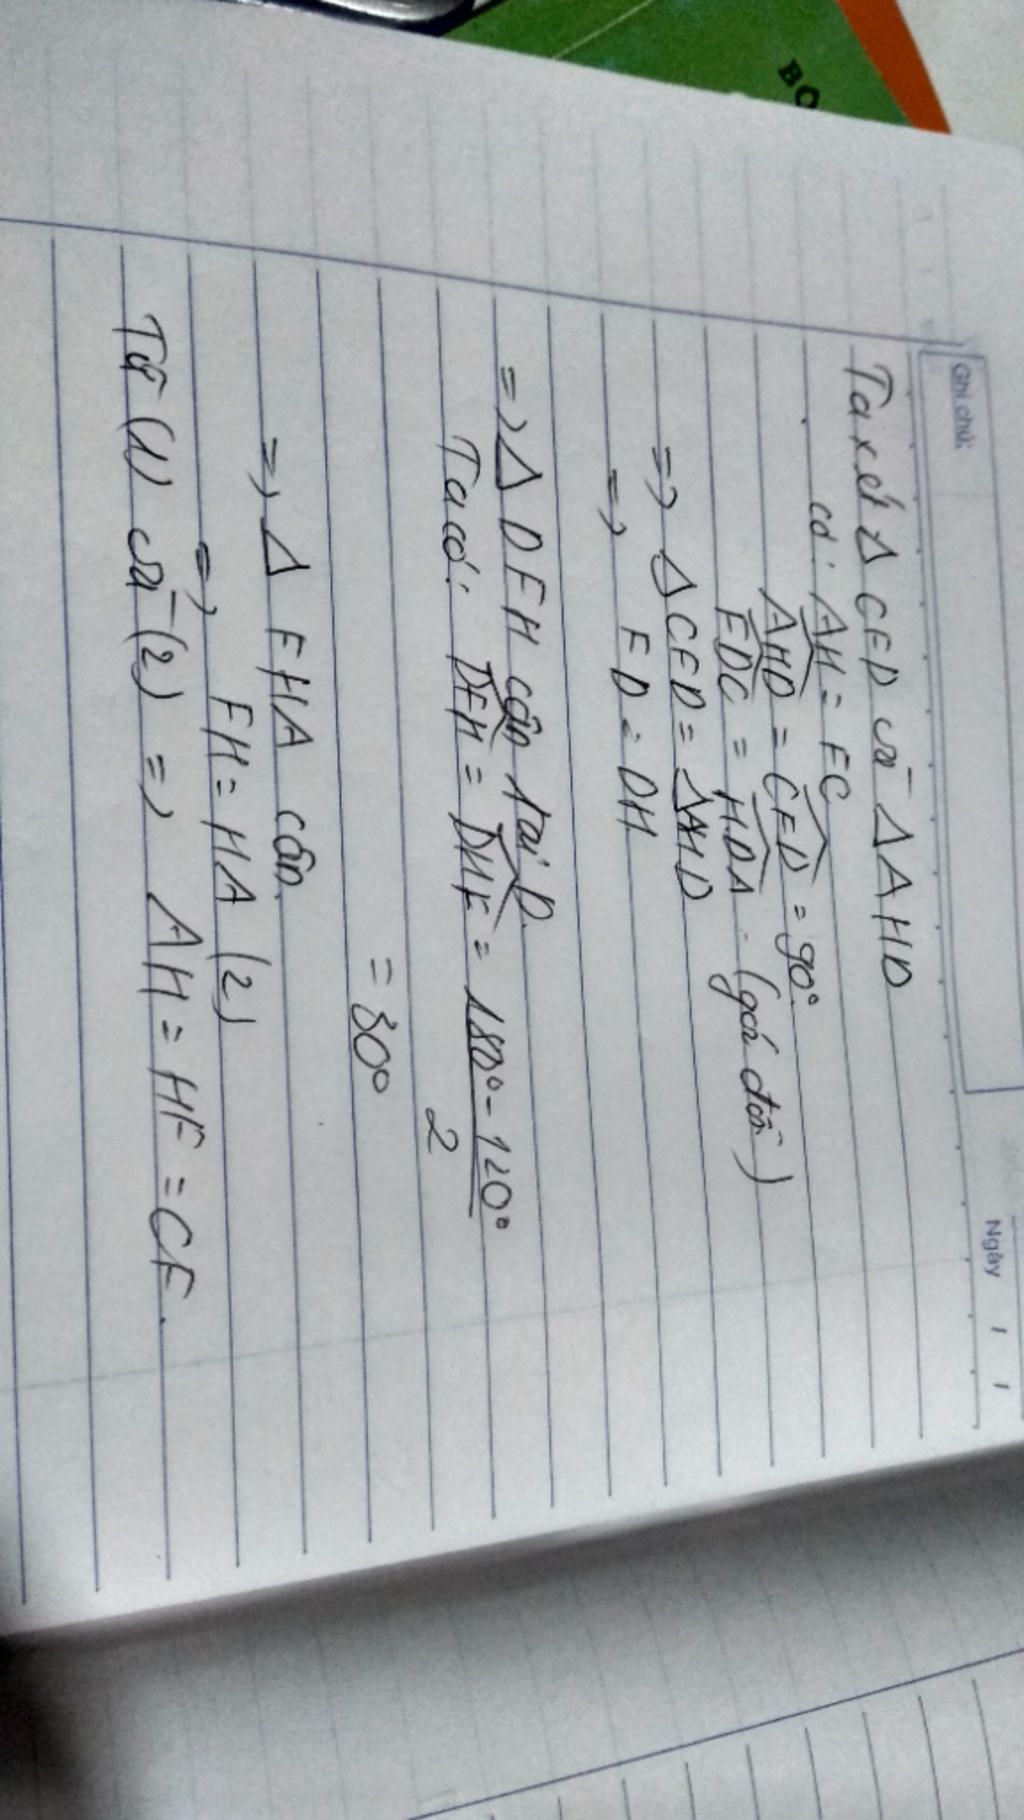 BO
Ghi chú:
Ngày / /
Ta xét Δ CFD và Δ AHD
có: AH = FC
AHD = CFD = 90°
FDC = HDA (gó đđ)
=> Δ CFD = ΔAHD
=> FD = DH
=> Δ DFH cân tại D.
Ta có: DFH = DHF = 180° - 120°
2
= 30°
=> Δ FHA cân
=> FH = HA (2)
Từ (1) và (2) => AH = HF = CF.